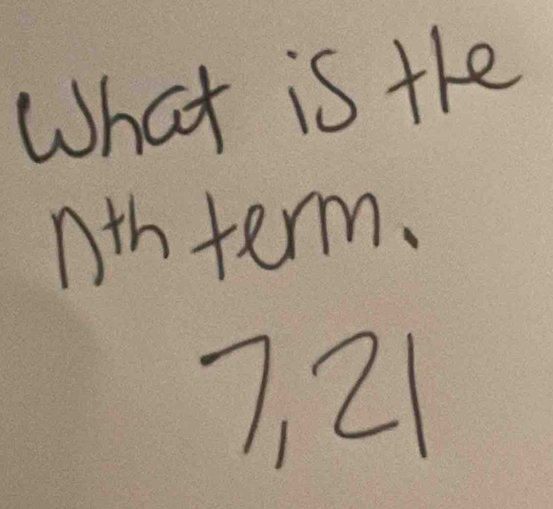 What is the
nth term.
7,21